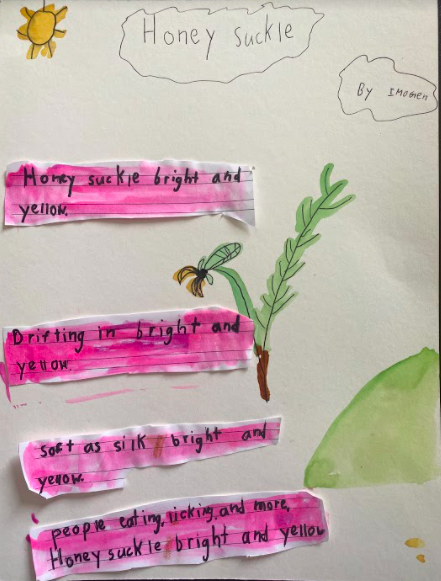 Honey suckle
By IMOGEN
Honey suckle bright and
yellow.
Drifting in bright and
yellow.
soft as silk bright and
yellow.
people eating, licking, and more,
Honey suckle bright and yellow